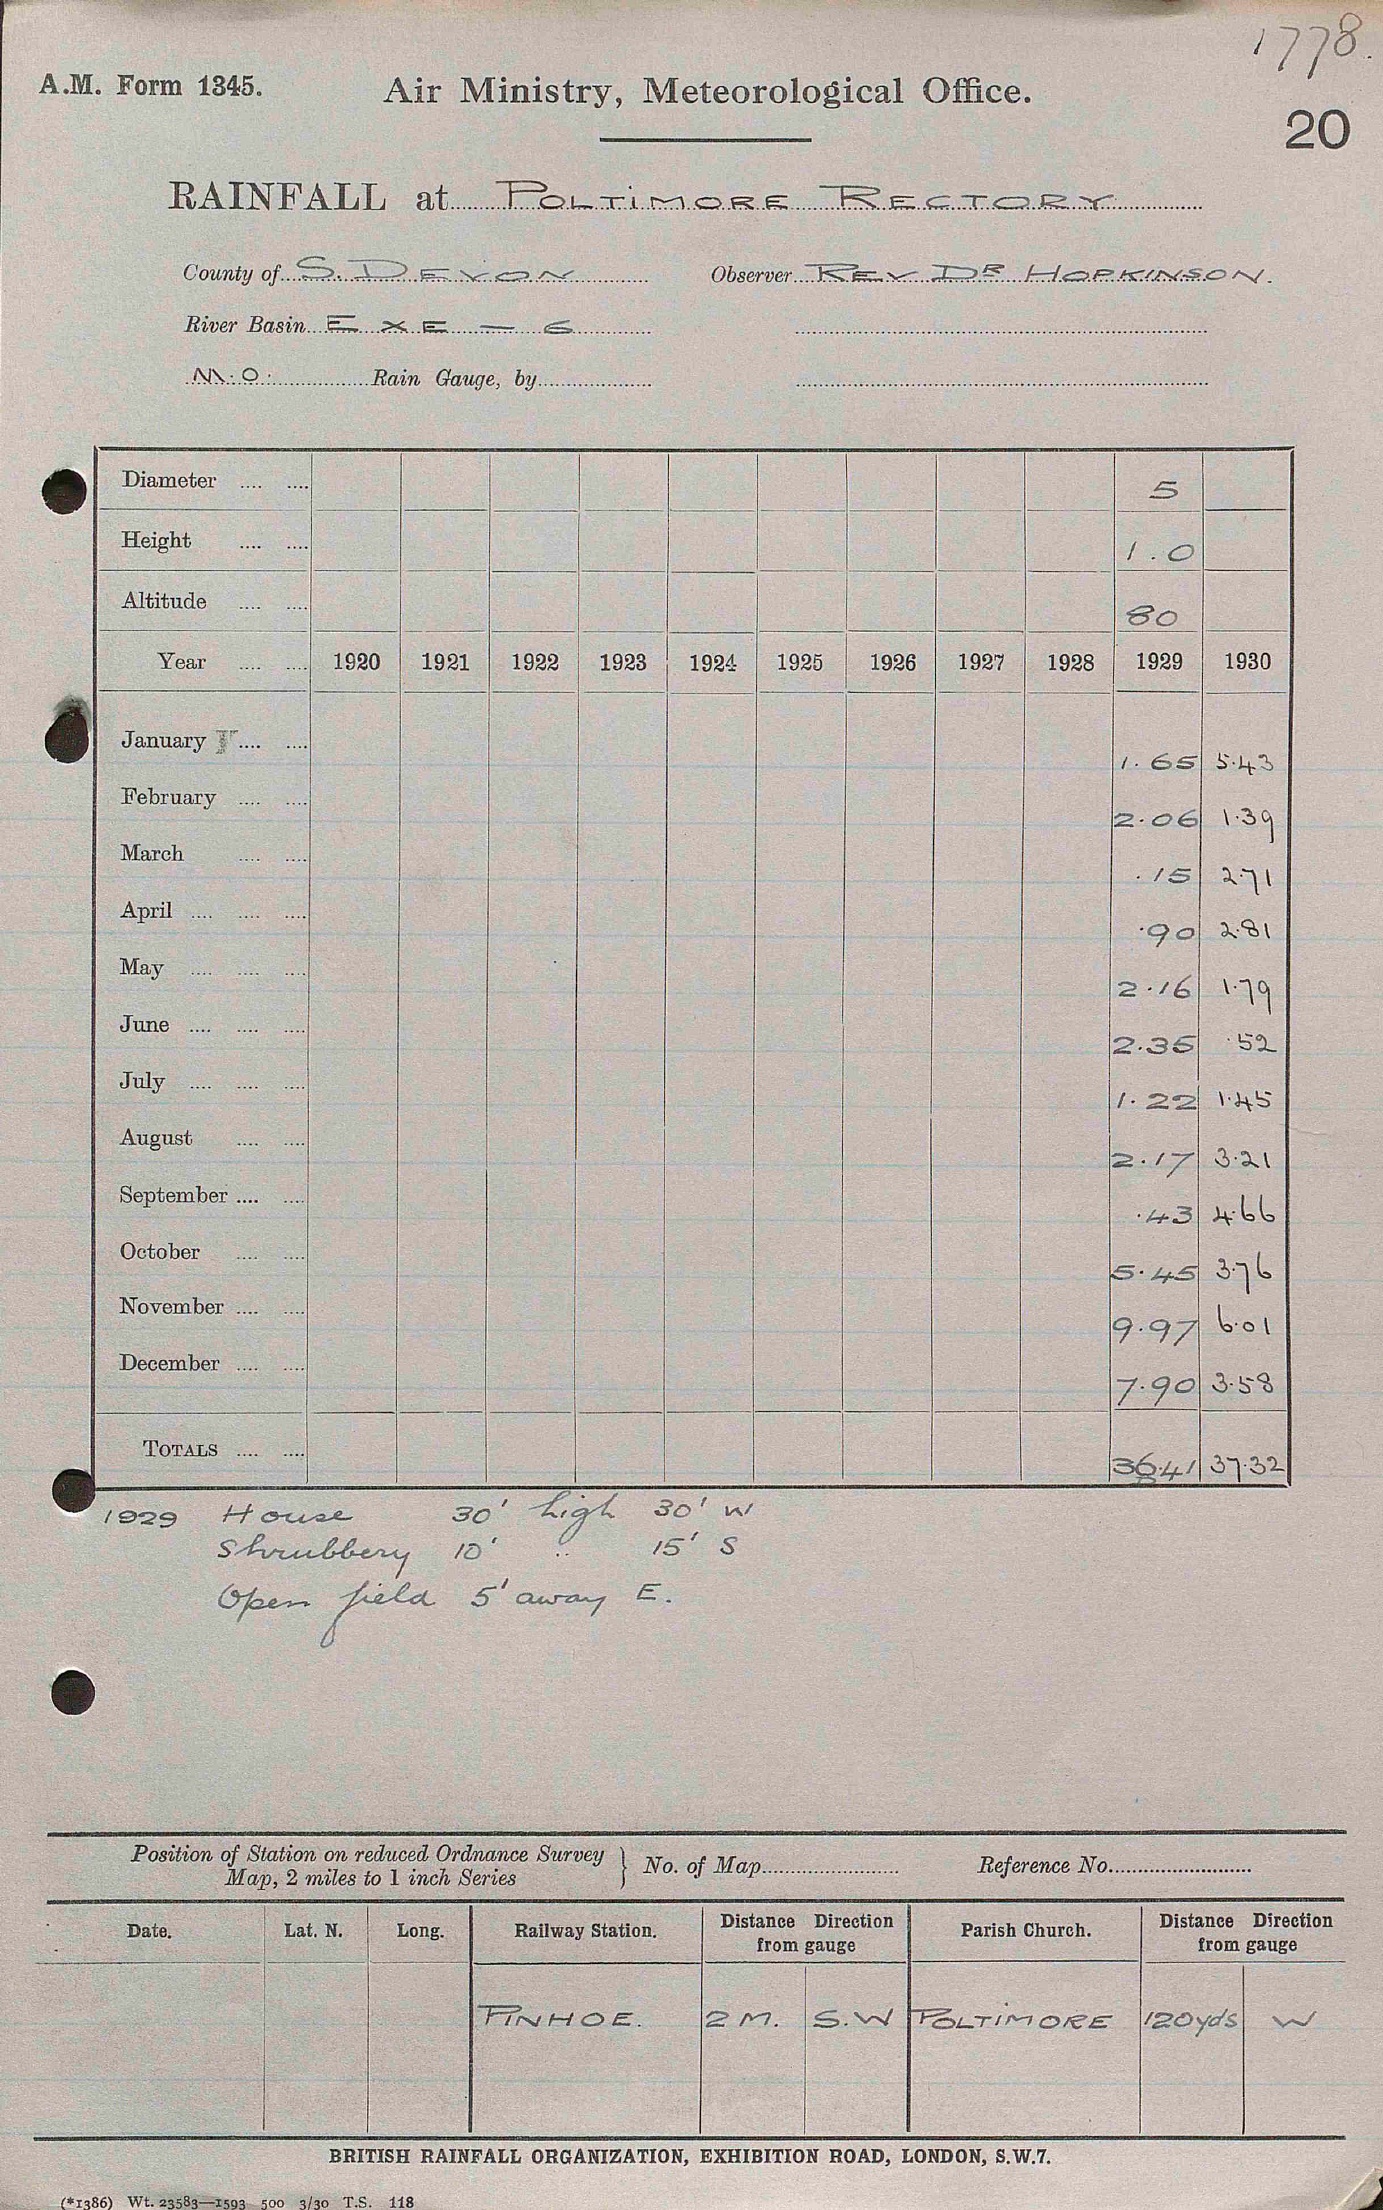 1778.
A.M. Form 1345. Air Ministry, Meteorological Office.
20
RAINFALL at POLTIMORE RECTORY
County of S. DEVON Observer REV DR HOPKINSON.
River Basin EXE — 6
M.O. Rain Gauge, by
Diameter .... .... 5
Height .... .... 1.0
Altitude .... .... 80
Year .... .... 1920 1921 1922 1923 1924 1925 1926 1927 1928 1929 1930
January .... .... 1.65 5.43
February .... .... 2.06 1.39
March .... .... .15 2.71
April .... .... .... .90 2.81
May .... .... .... 2.16 1.79
June .... .... .... 2.35 .52
July .... .... .... 1.22 1.45
August .... .... 2.17 3.21
September .... .... .43 4.66
October .... .... 5.45 3.76
November .... .... 9.97 6.01
December .... .... 7.90 3.58
TOTALS .... .... 36.41 37.32
1929 House 30' high 30' W
Shrubbery 10' .. 15' S
Open field 5' away E.
Position of Station on reduced Ordnance Survey
Map, 2 miles to 1 inch Series } No. of Map Reference No.
Date. Lat. N. Long. Railway Station. Distance Direction from gauge Parish Church. Distance Direction from gauge
PINHOE. 2 M. S.W POLTIMORE 120yds W
BRITISH RAINFALL ORGANIZATION, EXHIBITION ROAD, LONDON, S.W.7.
(*1386) Wt. 23583—1593 500 3/30 T.S. 118